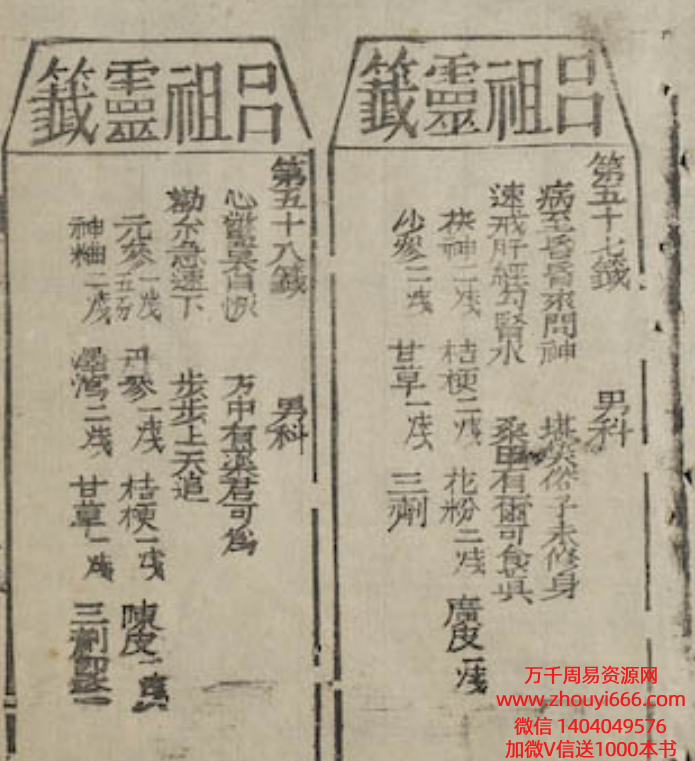 呂祖靈籤
第五十七籤 男科
病至昏昏來問神 堪笑俗子未修身
速戒肝經勾腎水 有爾可食
茯神二戔 桔梗二戔 花粉二戔 廣皮一戔
沙參二戔 甘草一戔 三劑
呂祖靈籤
第五十八籤 男科
心 自 方中有 君可
勸尔急速下 步步上天追
元參一戔五分 丹參一戔 桔梗一戔 陳皮二戔
神粬二戔 澤瀉二戔 甘草一戔 三劑
万千周易资源网
www.zhouyi666.com
微信 1404049576
加微V信送1000本书